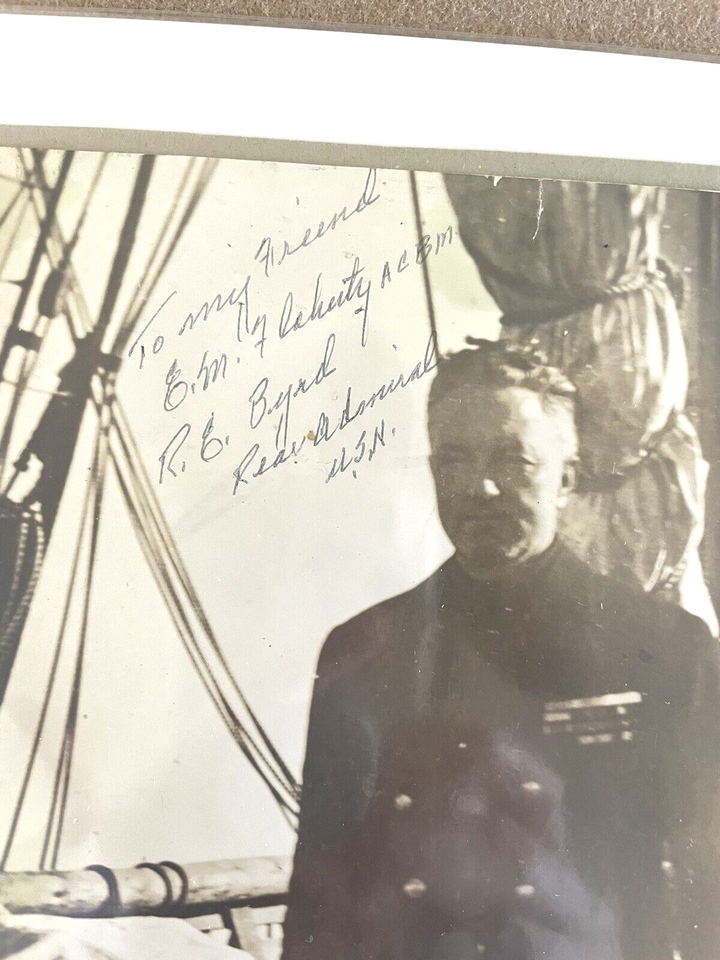 To my Friend
E.M. Floherty A C B M.
R. E. Byrd
Rear Admiral
U.S.N.